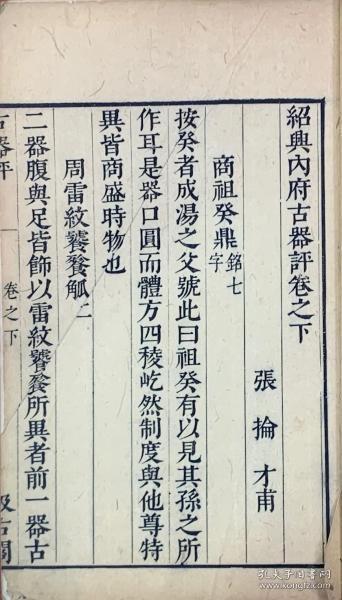 紹興內府古器評卷之下
張掄才甫
商祖癸鼎銘七字
按癸者成湯之父號此曰祖癸有以見其孫之所
作耳是器口圓而體方四稜屹然制度與他尊特
異皆商盛時物也
周雷紋饕餮觚二
二器腹與足皆飾以雷紋饕餮所異者前一器古
古器評
卷之下
汲古閣